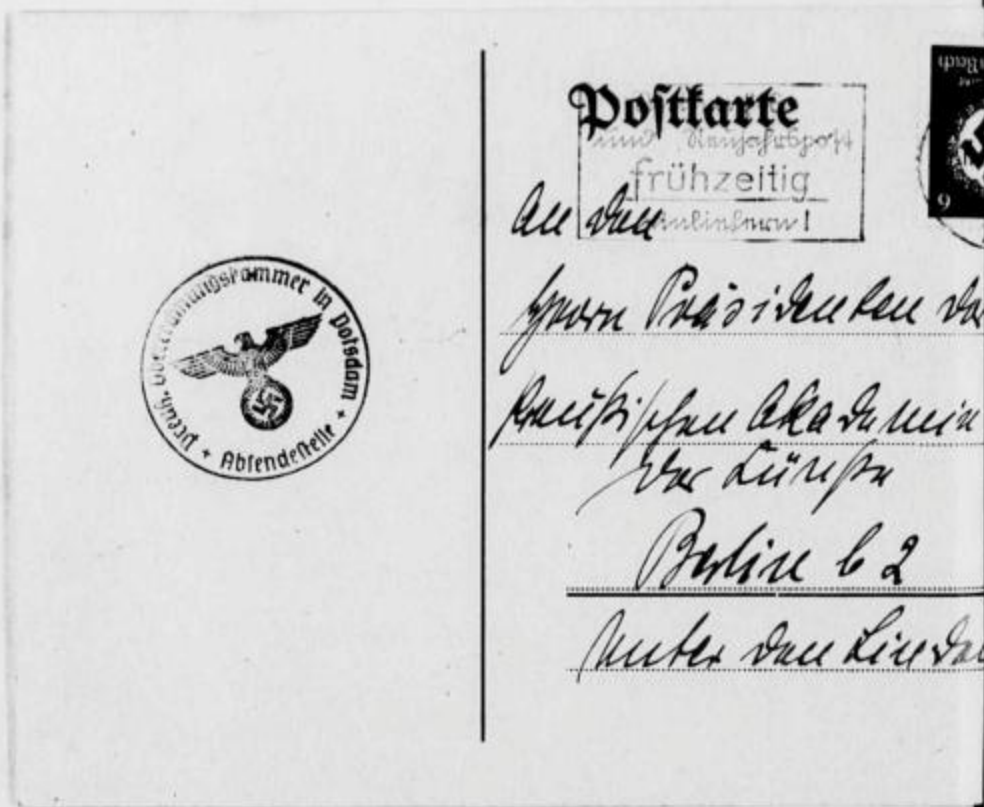 preuß. Oberrechnungskammer in Potsdam
+ Absendestelle +
Postkarte
und Neujahrspost
frühzeitig
einliefern!
An den
Herrn Präsidenten der
Preußischen Akademie
der Künste
Berlin C 2
Unter den Linden
6